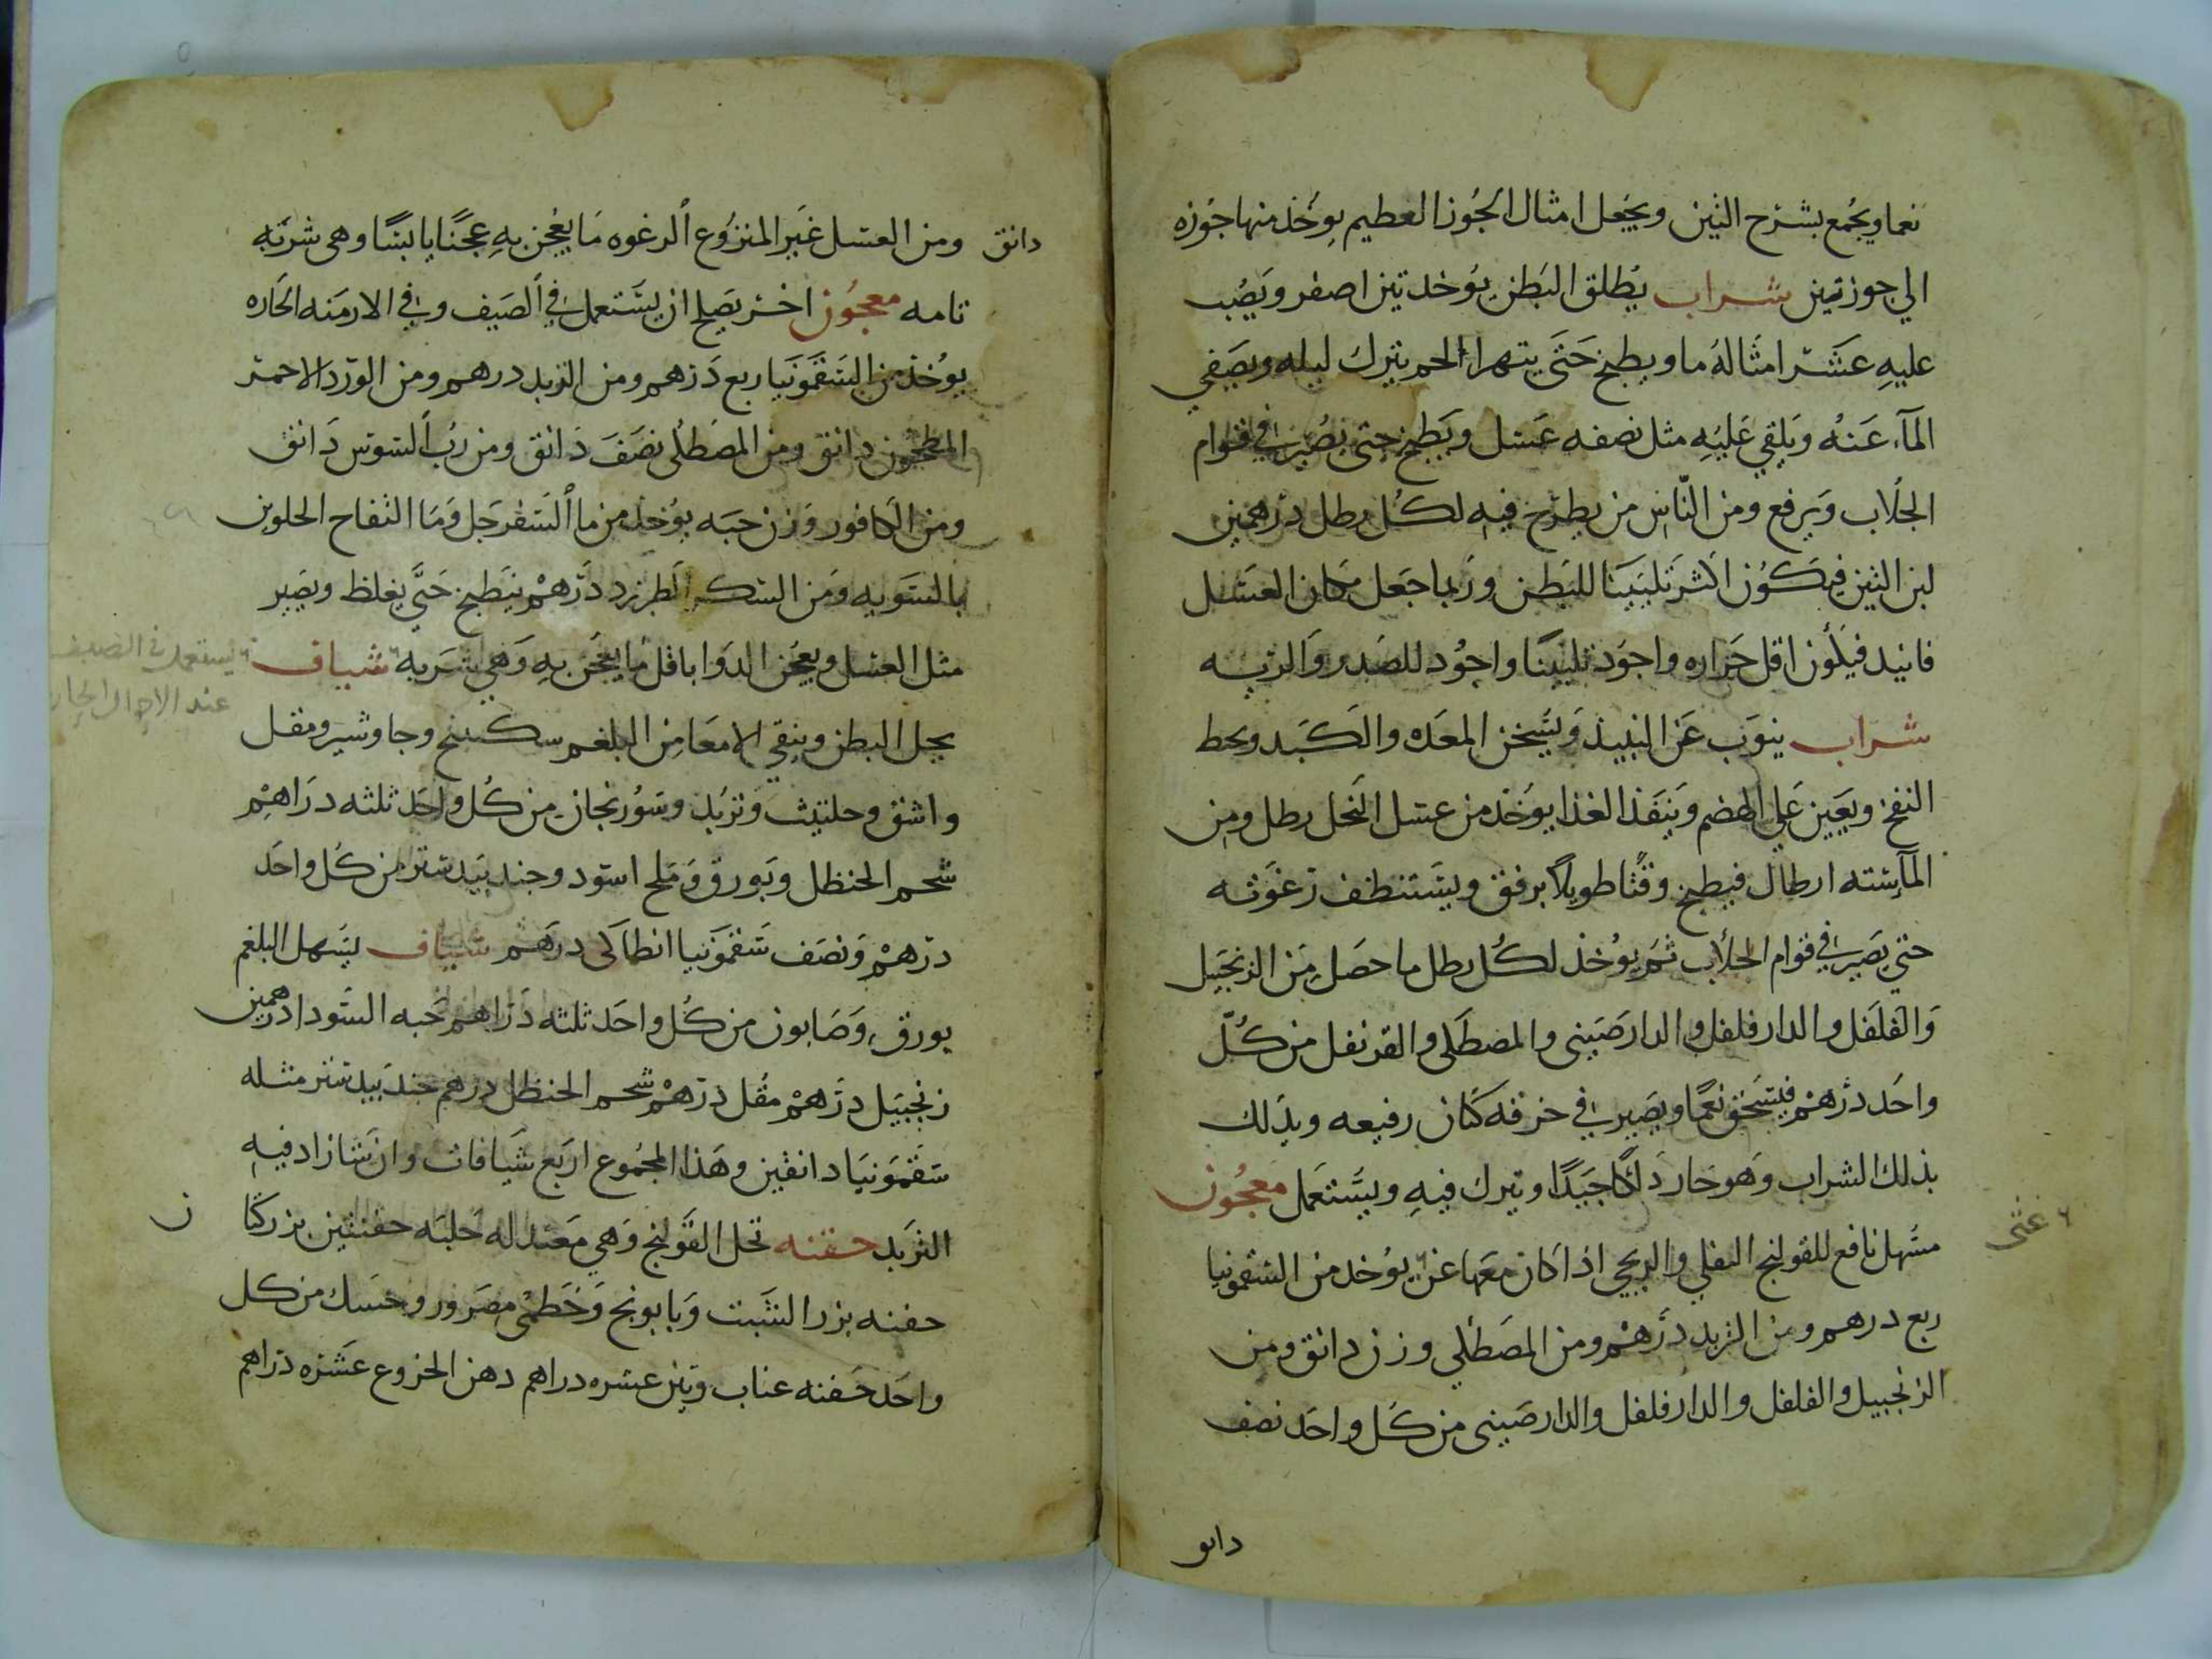 نعما ويجمع بشرح التين ويجعل امثال الجوز العظيم يوخذ منها جوزه
الي جوزتين شراب يطلق البطن يوخذ تين اصفر ويصب
عليه عشر امثاله ما ويطبخ حتى يتهرا الحم يترك ليله ويصفي
المآء عنه ويلقي عليه مثل نصفه عسل ويطبخ حتى يصير في قوام
الجلاب ويرفع ومن الناس من يطرح فيه لكل رطل درهمين
لبن التين فيكون اكثر تليينا للبطن وربما جعل مكان العسل
فانيد فيكون اقل حراره واجود تليينا واجود للصدر والريه
شراب ينوب عن النبيذ ويسخن المعده والكبد ويحط
النفخ ويعين علي الهضم وينفذ الغذا يوخذ من عسل النحل رطل ومن
المآ سته ارطال فيطبخ وقتا طويلا برفق ويستنظف رغوته
حتي يصير في قوام الجلاب ثم يوخذ لكل رطل ما حصل من الزنجبيل
والفلفل والدارفلفل والدارصيني والمصطكي والقرنفل من كل
واحد درهم فيسحق نعما ويصير في خرقه كتان رفيعه ويدلك
بذلك الشراب وهو حار دلكا جيدا ويترك فيه ويستعمل معجون
مسهل نافع للقولنج الثفلي والريحي اذا كان معها غثي يوخذ من السقمونيا
ربع درهم ومن التربد درهم ومن المصطكي وزن دانق ومن
الزنجبيل والفلفل والدارفلفل والدارصيني من كل واحد نصف
دانق
غثى
دانق ومن العسل غير المنزوع الرغوه ما يعجن به عجنا يابسا وهي شربه
تامه معجون اخر يصلح ان يستعمل في الصيف وفي الازمنه الحاره
يوخذ من السقمونيا ربع درهم ومن التربد درهم ومن الورد الاحمر
المطحون دانق ومن المصطكي نصف دانق ومن رب السوس دانق
ومن الكافور وزن حبه يوخذ من ما السفرجل وما التفاح الحلوين
بالسويه ومن السكر الطبرزد درهم ينطبخ حتي يغلظ ويصير
مثل العسل ويعجن الدوا باقل ما يعجن به وهي شربه شياف
يحل البطن وينقي الامعا من البلغم سكبينج وجاوشير ومقل
واشق وحلتيث وتربد وسورنجان من كل واحد ثلثه دراهم
شحم الحنظل وبورق وملح اسود وجندبيدستر من كل واحد
درهم ونصف سقمونيا انطاكي درهم شياف يسهل البلغم
بورق وصابون من كل واحد ثلثه دراهم حبه السودا درهمين
زنجبيل درهم مقل درهم شحم الحنظل درهم جندبيدستر مثله
سقمونيا دانقين وهذا المجموع اربع شيافات وان شا زاد فيه
التربد حقنه تحل القولنج وهي معتدله حلبه حفنتين بزر كتا
ن
حفنه بزر الشبت وبابونج وخطمي مصرور وحسك من كل
واحد حفنه عناب وتين عشره دراهم دهن الخروع عشره دراهم
يستعمل في الصيف
عند الاحوال الحاره